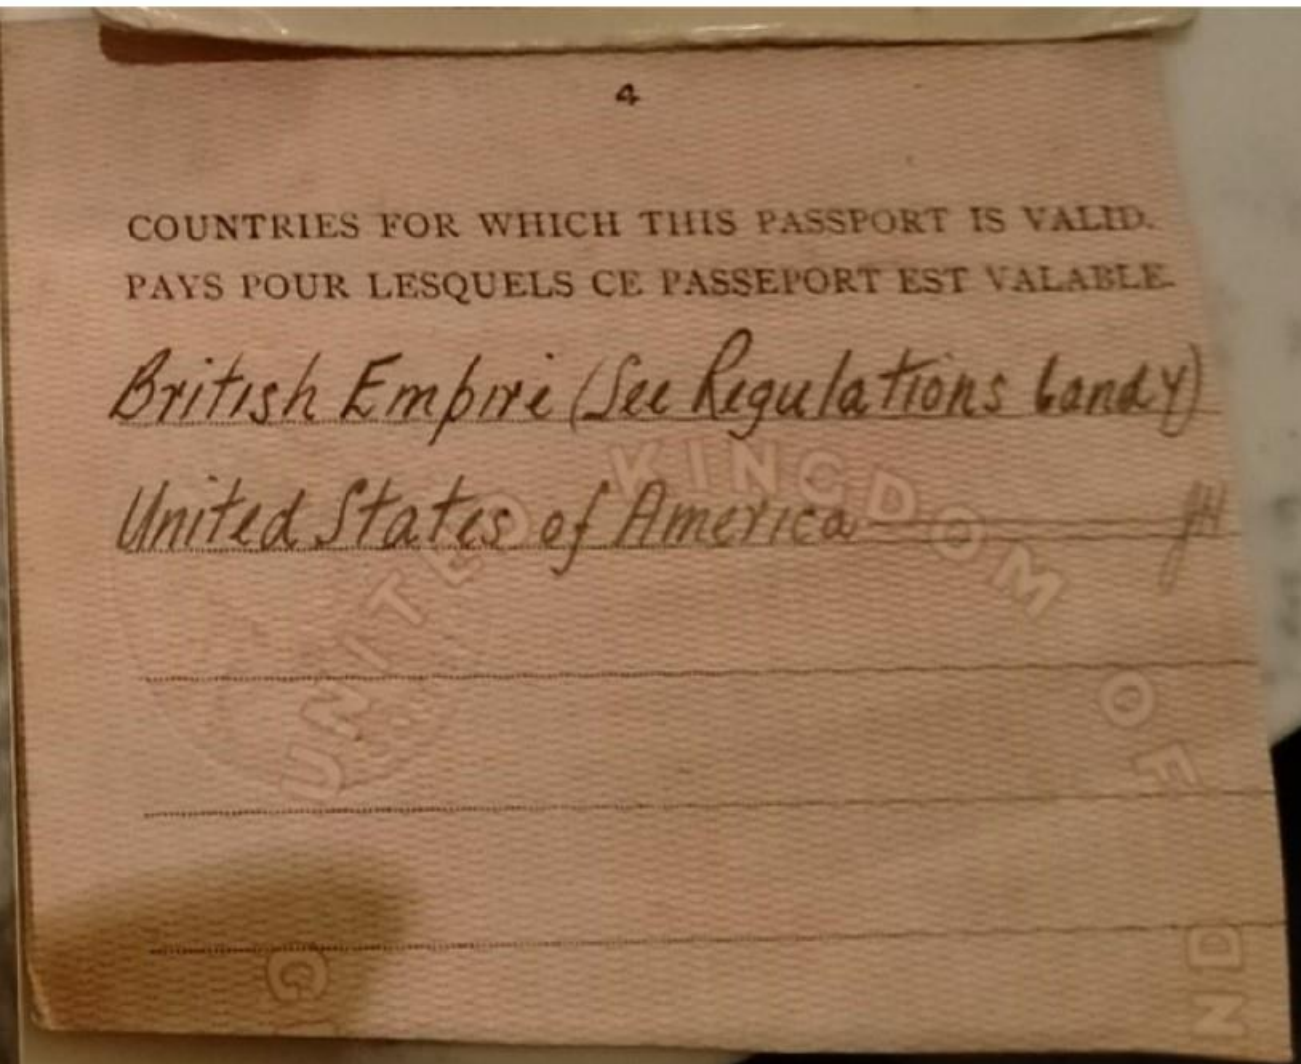 4
COUNTRIES FOR WHICH THIS PASSPORT IS VALID.
PAYS POUR LESQUELS CE PASSEPORT EST VALABLE.
British Empire (See Regulations 6 and 7)
United States of America
UNITED KINGDOM OF
G
ND